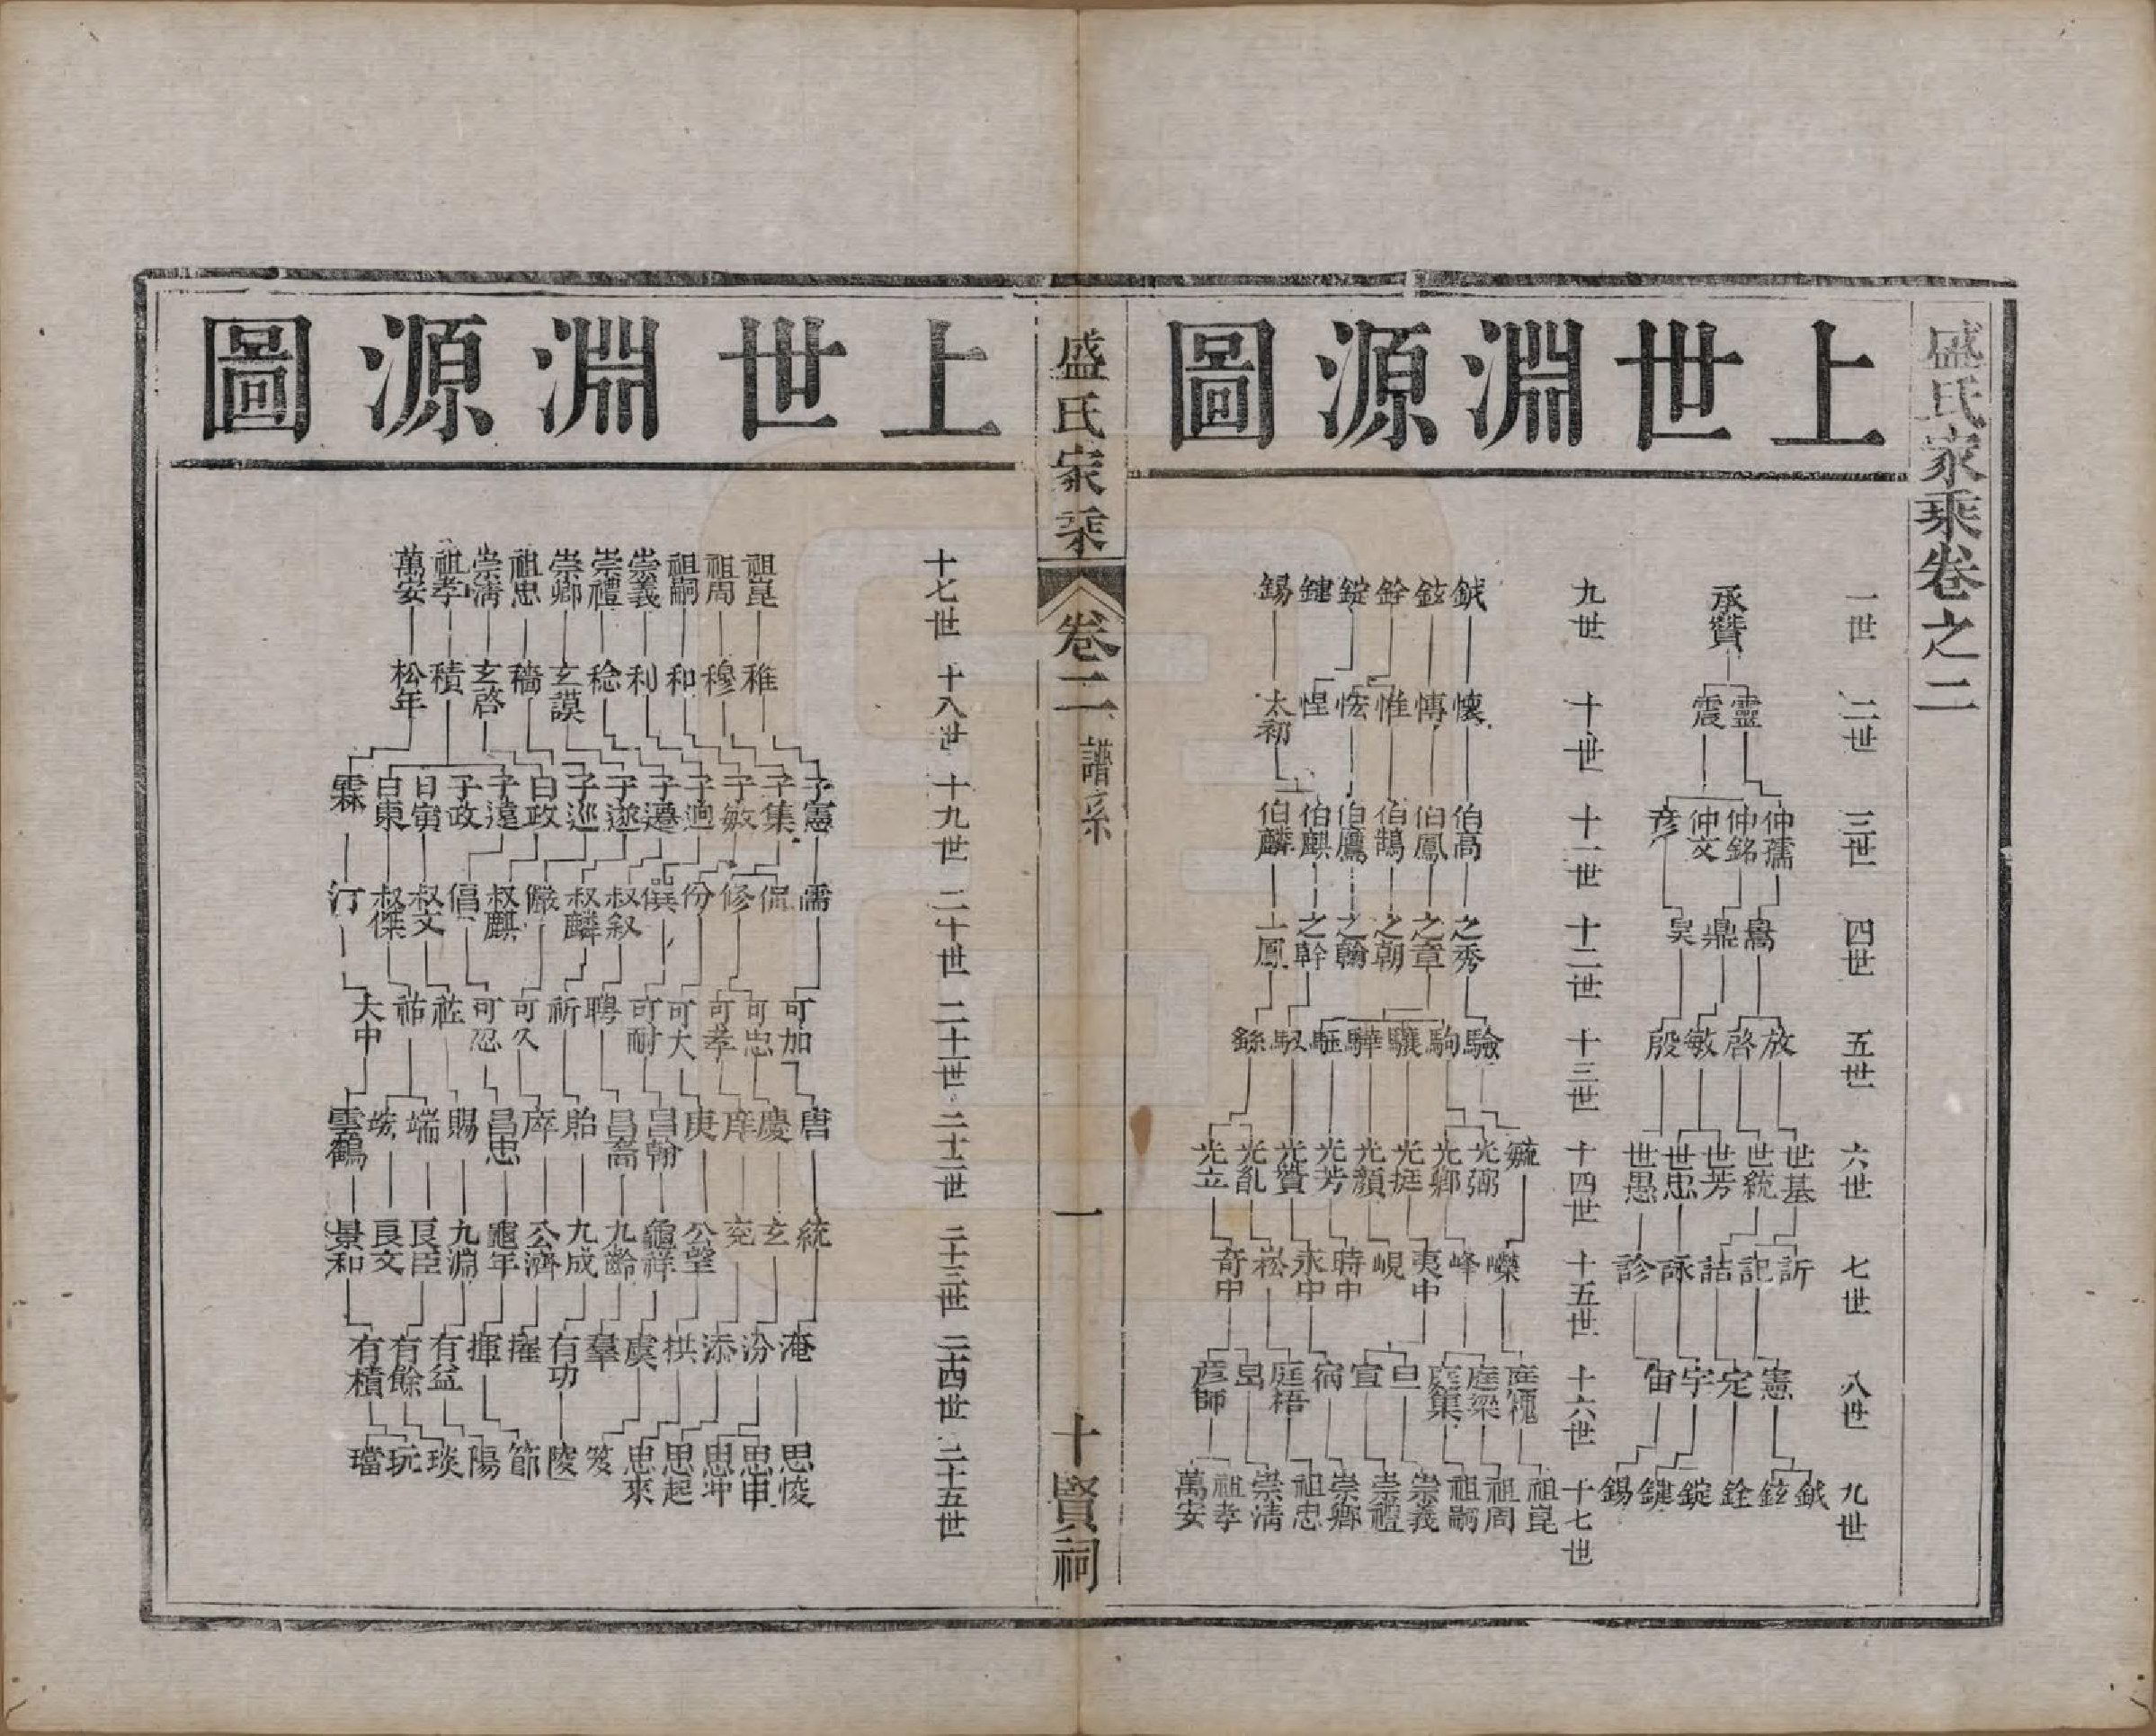 盛氏家乘卷之二
上世淵源圖
一世
承贊
二世
靈 震
三世
仲孺 仲銘 仲文 彥
四世
暠 鼎 昊
五世
放 啓 敏 殷
六世
世基 世統 世芳 世忠 世愚
七世
訢 記 詰 詠 診
八世
憲 定 宇 宙
九世
鉞 鉉 銓 錠 鍵 錫
九世
鉞 鉉 銓 錠 鍵 錫
十世
懷 愽 惟 恢 悝 太初
十一世
伯高 伯鳳 伯鵠 伯鷹 伯麒 伯麟
十二世
之秀 之章 之朝 之翰 之幹 士鳳
十三世
驗 駒 驥 驊 駐 馭
十四世
毓 光弼 光鄉 光挺 光顏 光芳 光贊 光亂 光立
十五世
嶸 峰 夷中 峴 時中 永中 崧 奇中
十六世
庭槐 庭梁 庭集 亘 宣 宿 庭梧 彥師
十七世
祖崑 祖周 祖嗣 崇義 崇禮 崇鄉 祖忠 崇清 祖孝 萬安
盛氏家乘
卷二 譜系
一
十賢祠
上世淵源圖
十七世
祖崑 祖周 祖嗣 崇義 崇禮 崇卿 祖忠 崇清 祖孝 萬安
十八世
稚 穆 和 利 稔 玄謨 穡 玄啓 積 松年
十九世
子憲 子集 子敏 子迥 子遷 子遂 子巡 白政 子遠 子政 日嵎 日東 霖
二十世
儒 侃 修 份 僎 叔叙 叔麟 儼 叔麒 倡 叔文 叔傑 汀
二十一世
可加 可忠 可孝 可大 可耐 聘 祈 可久 可忍 祉 祐 大中
二十二世
唐 慶 庠 庚 昌翰 昌喬 貽 庠 昌忠 賜 端 竣 雲鶴
二十三世
統 玄 兗 公望 龜祥 九齡 九成 公濟 龜年 九淵 良臣 良文 景和
二十四世
淹 汾 添 拱 虞 羣 有功 擢 揮 有盆 有餘 有積
二十五世
思恔 思申 思冲 思起 思來 笈 陵 節 陽 琰 玩 璫